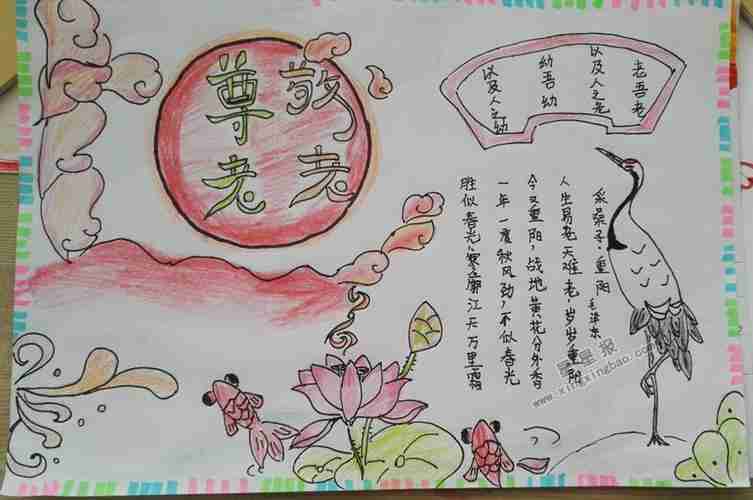 敬老
尊老
老吾老
以及人之老
幼吾幼
以及人之幼
采桑子·重阳
毛泽东
人生易老天难老，岁岁重阳
今又重阳，战地黄花分外香
一年一度秋风劲，不似春光
胜似春光，寥廓江天万里霜
星星报
www.xingxingbao.com